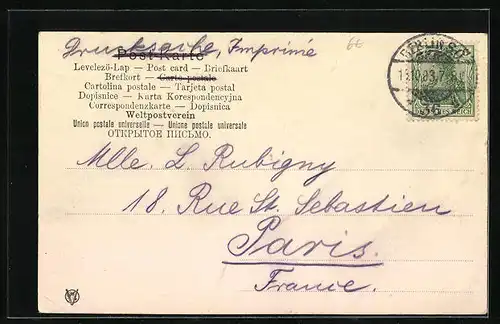 Drucksache, Imprimé 66
Post-Karte
Levelező-Lap — Post card — Briefkaart
Brefkort — Carte postale
Cartolina postale — Tarjeta postal
Dopisnice — Karta Korespondencyjna
Correspondenzkarte — Dopisnica
Weltpostverein
Union postale universelle — Unione postale universale
ОТКРЫТОЕ ПИСЬМО.
Mlle. L. Rubigny
18. Rue St. Sebastien
Paris.
France.
BERLIN
REICH